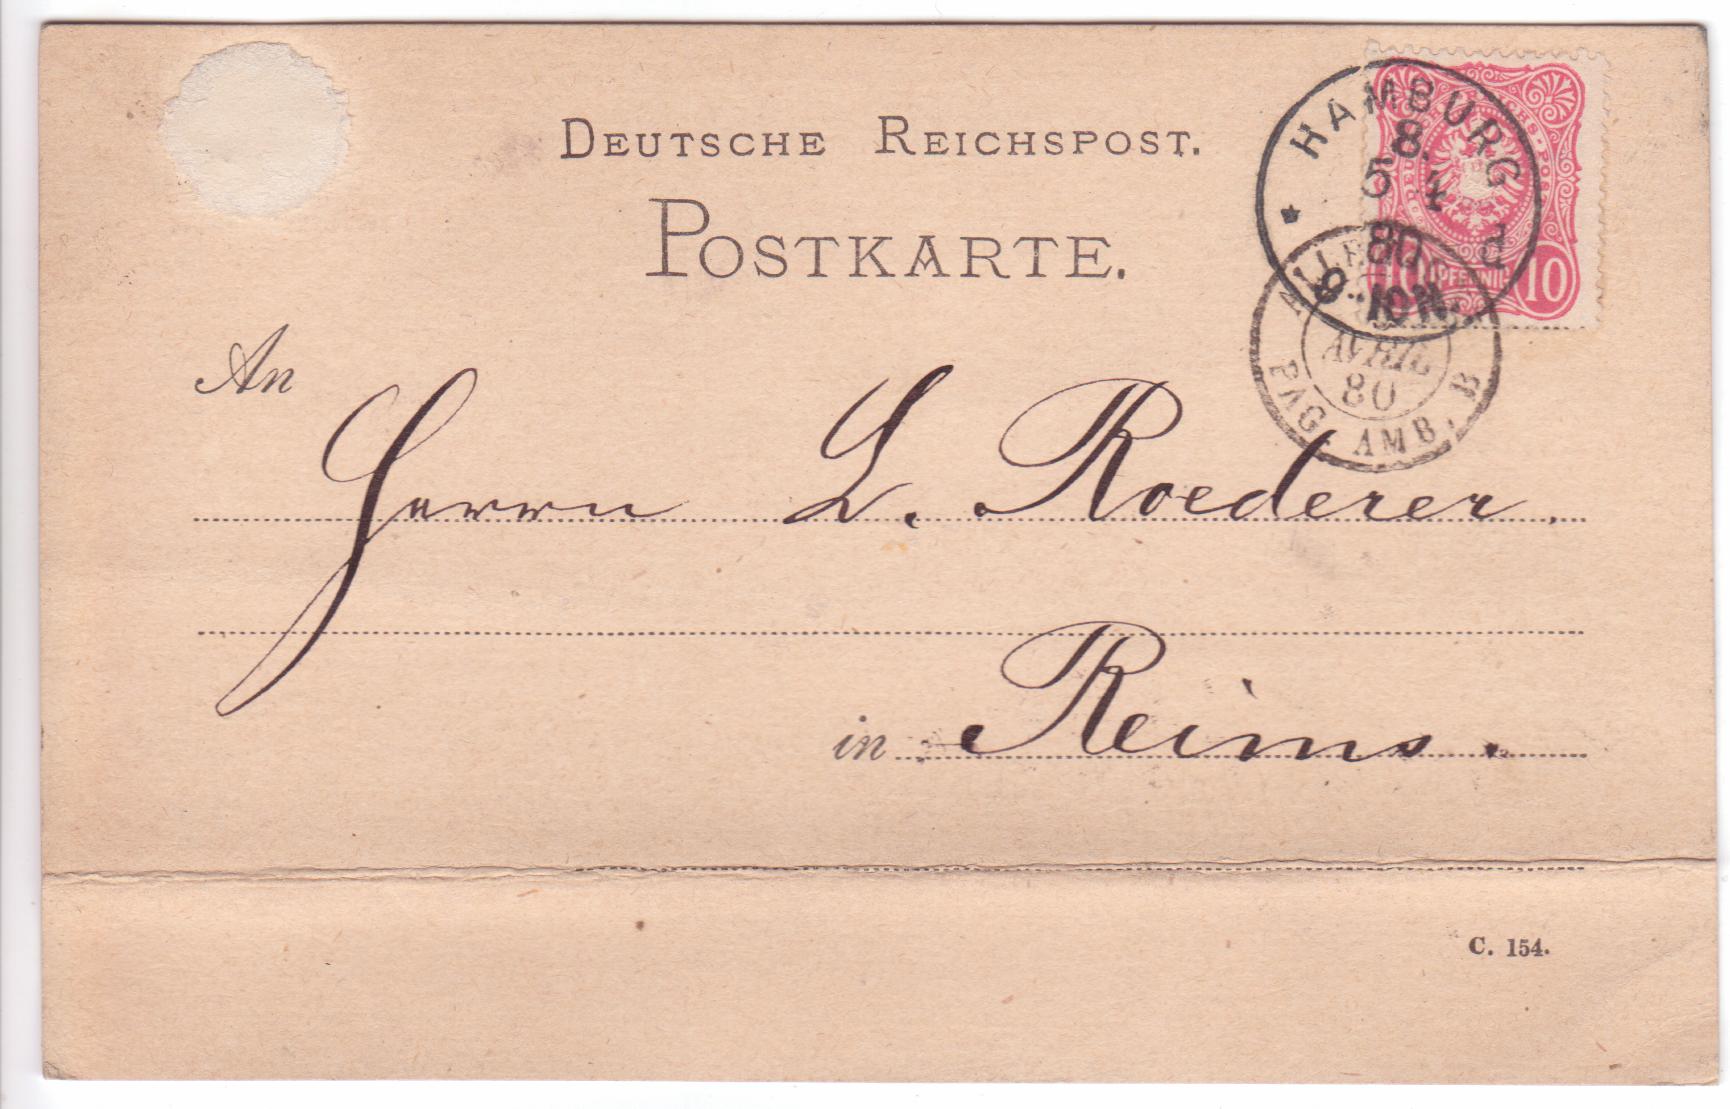 DEUTSCHE REICHSPOST.
POSTKARTE.
HAMBURG
8.
5 4
80 d
9-10 N.
PFENNIG
10
AVRIL
80
PAG. AMB. B
An
Herrn L. Roederer.
in Reims.
C. 154.